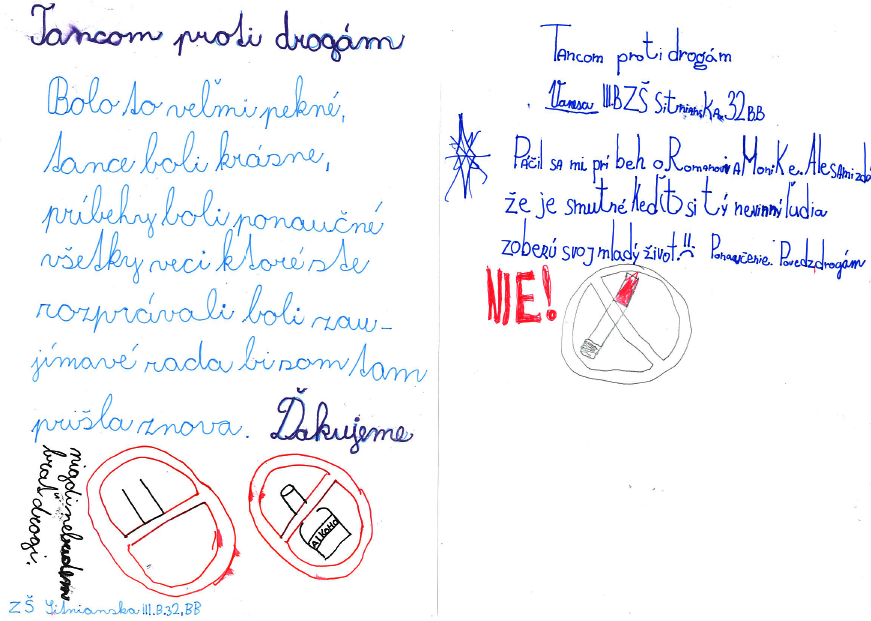 Tancom proti drogám
Bolo to veľmi pekné,
tance boli krásne,
príbehy boli ponaučné
všetky veci ktoré ste
rozprávali boli zau-
jímavé rada bi som tam
prišla znova. Ďakujeme
nigdi nebudem
brať drogi.
Alkoho
ZŠ Sitnianska III.B.32,BB
Tancom proti drogám
Vanesa III.B ZŠ Sitnianska.32 BB
Páčil sa mi prí beh o Romanovi a Monike. Ale sa mi zdá
že je smutné keď to si tý nevinný ľudia
zoberú svoj mladý život.!! Ponaučenie: Povedz drogám
NIE!